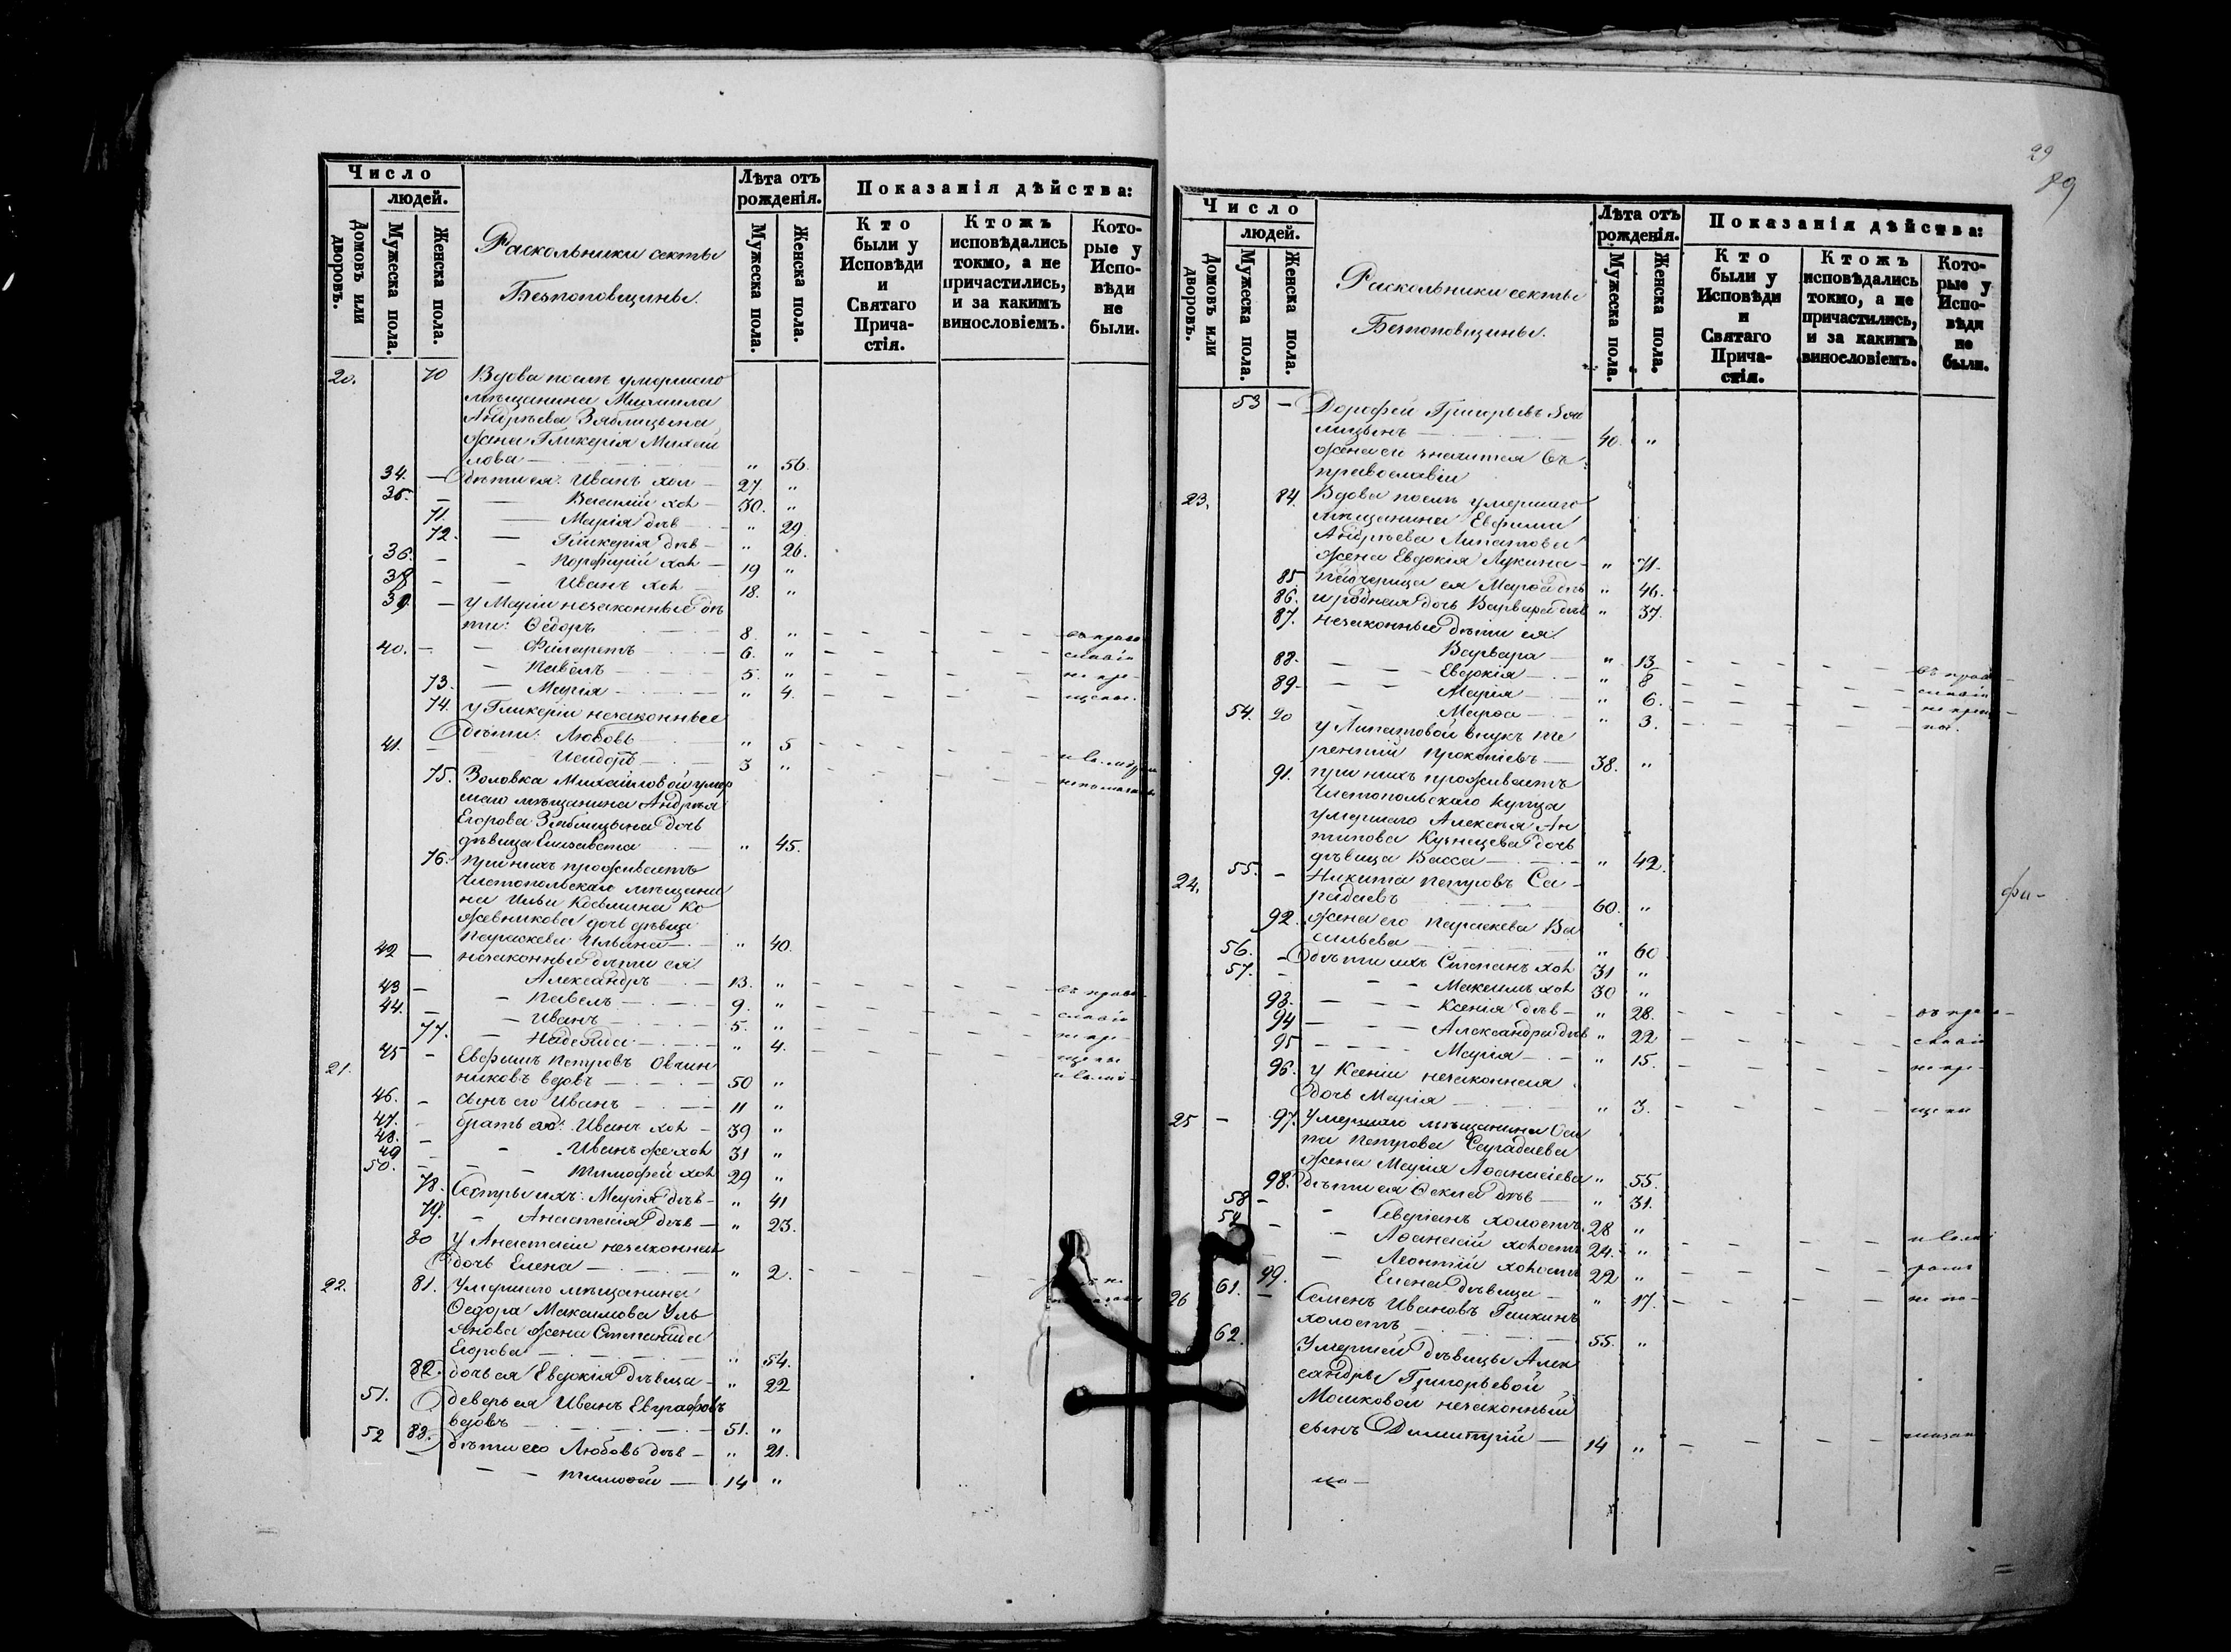 Число
людей.
Домовъ или дворовъ.
Мужеска пола.
Женска пола.
Раскольники секты
Безпоповщины.
Лѣта отъ рожденія.
Мужеска пола.
Женска пола.
Показанія дѣйства:
Кто были у Исповѣди и Святаго Прича-стія.
Ктожъ исповѣдались токмо, а не причастились, и за какимъ винословіемъ.
Кото-рые у Испо-вѣди не были.
20. 70 Вдова послѣ умершаго
мѣщанина Михаила
Андрѣева Зяблицына
жена Гликерія Михай
лова — " 56.
34. — дѣти ея: Иванъ хол — 27. "
35. — Василій хол — 30. "
71. — Марія дѣв — " 29.
72. — Гликерія дѣв — " 26.
36. — Порфирій хол — 19 "
38 — Иванъ хол — 18. "
39. — у Маріи незаконные дѣ
ти: Ѳедоръ — 8. " въ право
40. — Филаретъ — 6. " славіи
— Павелъ — 5. " не кре-
73. — Марія — " 4. щены.
74. у Гликеріи незаконные
дѣти: Любовь " 5
41. — Исидоръ — 3 "
75. Золовка Михайловой умер
шаго мѣщанина Андрѣя
Егорова Зяблицына дочь
дѣвица Елисавета — " 45.
76. при нихъ проживаетъ
Чистопольскаго мѣщани
на Ильи Козьмина Ко
жевникова дочь дѣвица
Параскева Ильина — " 40.
42 — незаконные дѣти ея:
Александръ — 13. "
43 — Павелъ — 9. " въ право
44. — Иванъ — 5. " славіи
77. — Надежда — " 4. не кре-
21. 45 — Евфимъ Петровъ Овчин щены
никовъ вдовъ — 50 "
46. — сынъ его Иванъ — 11 "
47. — братья его: Иванъ хол — 39 "
48. — Иванъ же хол 31 "
49
50. — Тимофей хол 29 "
78. Сестры ихъ: Марія дѣв — " 41
79. — Анастасія дѣв — " 23.
80 у Анастасіи незаконная
дочь Елена — " 2.
22. 81. Умершаго мѣщанина
Ѳедора Максимова Уль
янова жена Степанида
Егорова — " 54.
82. дочь ея Евдокія дѣвица — " 22
51. деверь ея Иванъ Евграфовъ
вдовъ — 51. "
52 83. дѣти его Любовь дѣв — " 21.
— Тимофей — 14 "
29
89
Число
людей.
Домовъ или дворовъ.
Мужеска пола.
Женска пола.
Раскольники секты
Безпоповщины.
Лѣта отъ рожденія.
Мужеска пола.
Женска пола.
Показанія дѣйства:
Кто были у Исповѣди и Святаго Прича-стія.
Ктожъ исповѣдались токмо, а не причастились, и за какимъ винословіемъ.
Кото-рые у Испо-вѣди не были.
53 — Дорофей Григорьевъ Зяб
лицынъ — 40. "
жена его значится въ
православіи
23. 84. Вдова послѣ умершаго
мѣщанина Евфима
Андрѣева Липатова
жена Евдокія Лукина — " 71.
85 падчерица ея Марѳа дѣв " 46.
86. и родная дочь Варвара дѣв " 37.
87. незаконные дѣти ея:
Варвара — " 13
88. — Евдокія — " 8 въ право
89. — Марія — " 6. славіи
54. 90 Марѳа — " 3. не креще
у Липатовой внукъ Те ны.
рентій Прокопіевъ — 38. "
91. при нихъ проживаетъ
Чистопольскаго купца
умершаго Алексѣя Ан
типова Кузнецова дочь
дѣвица Васса — " 42.
24. 55. — Никита Петровъ Са-
радаевъ 60. "
92. жена его Параскева Ва
сильева — " 60
56. — дѣти ихъ Степанъ хол 31 "
57. — Максимъ хол 30 "
93. — Ксенія дѣв — " 28. въ право
94 — Александра дѣв " 22 славіи
95 — Марія — " 15. не кре-
96. у Ксеніи незаконная
дочь Марія " 3. щены
25 — 97. Умершаго мѣщанина Оси
па Петрова Сарадаева
жена Марія Аѳанасіева " 55.
98. дѣти ея Ѳекла дѣв — " 31.
58 — Северіанъ холостъ 28 "
59 — Аѳанасій холостъ 24. "
— Леонтій холостъ 22 "
99. Елена дѣвица — " 17.
26 61. — Семенъ Ивановъ Галкинъ
холостъ — 55. "
62. Умершей дѣвицы Алек
сандры Григорьевой
Мошковой незаконный
сынъ Димитрій — 14 "